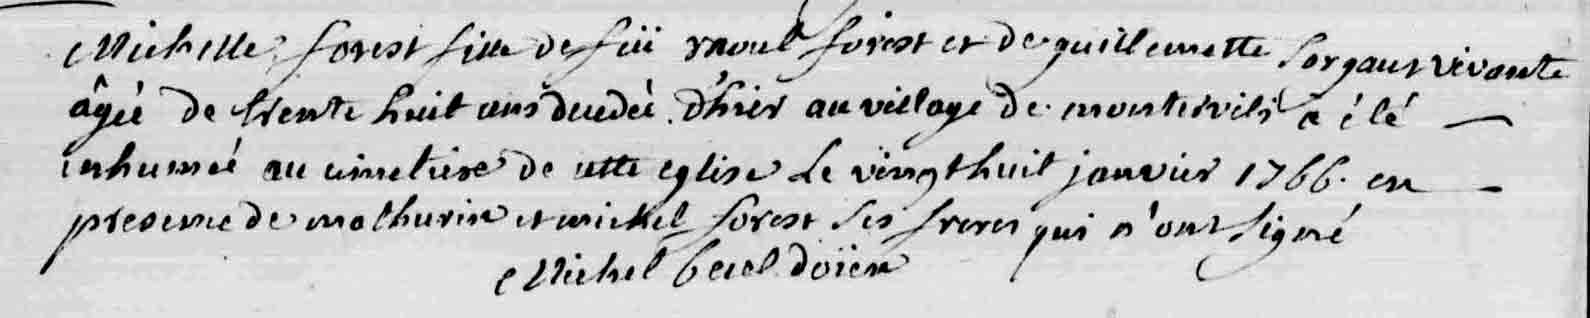 Michelle forest fille de feü raoul forest et de guillemette Sorgaut vivante
âgée de trente huit ans decedeé d'hier au village de montervily a été
inhumeé au cimetiere de cette eglise Le vingt huit janvier 1766. en
presence de mathurin et michel forest ses freres qui n'ont signé
Michel doïen